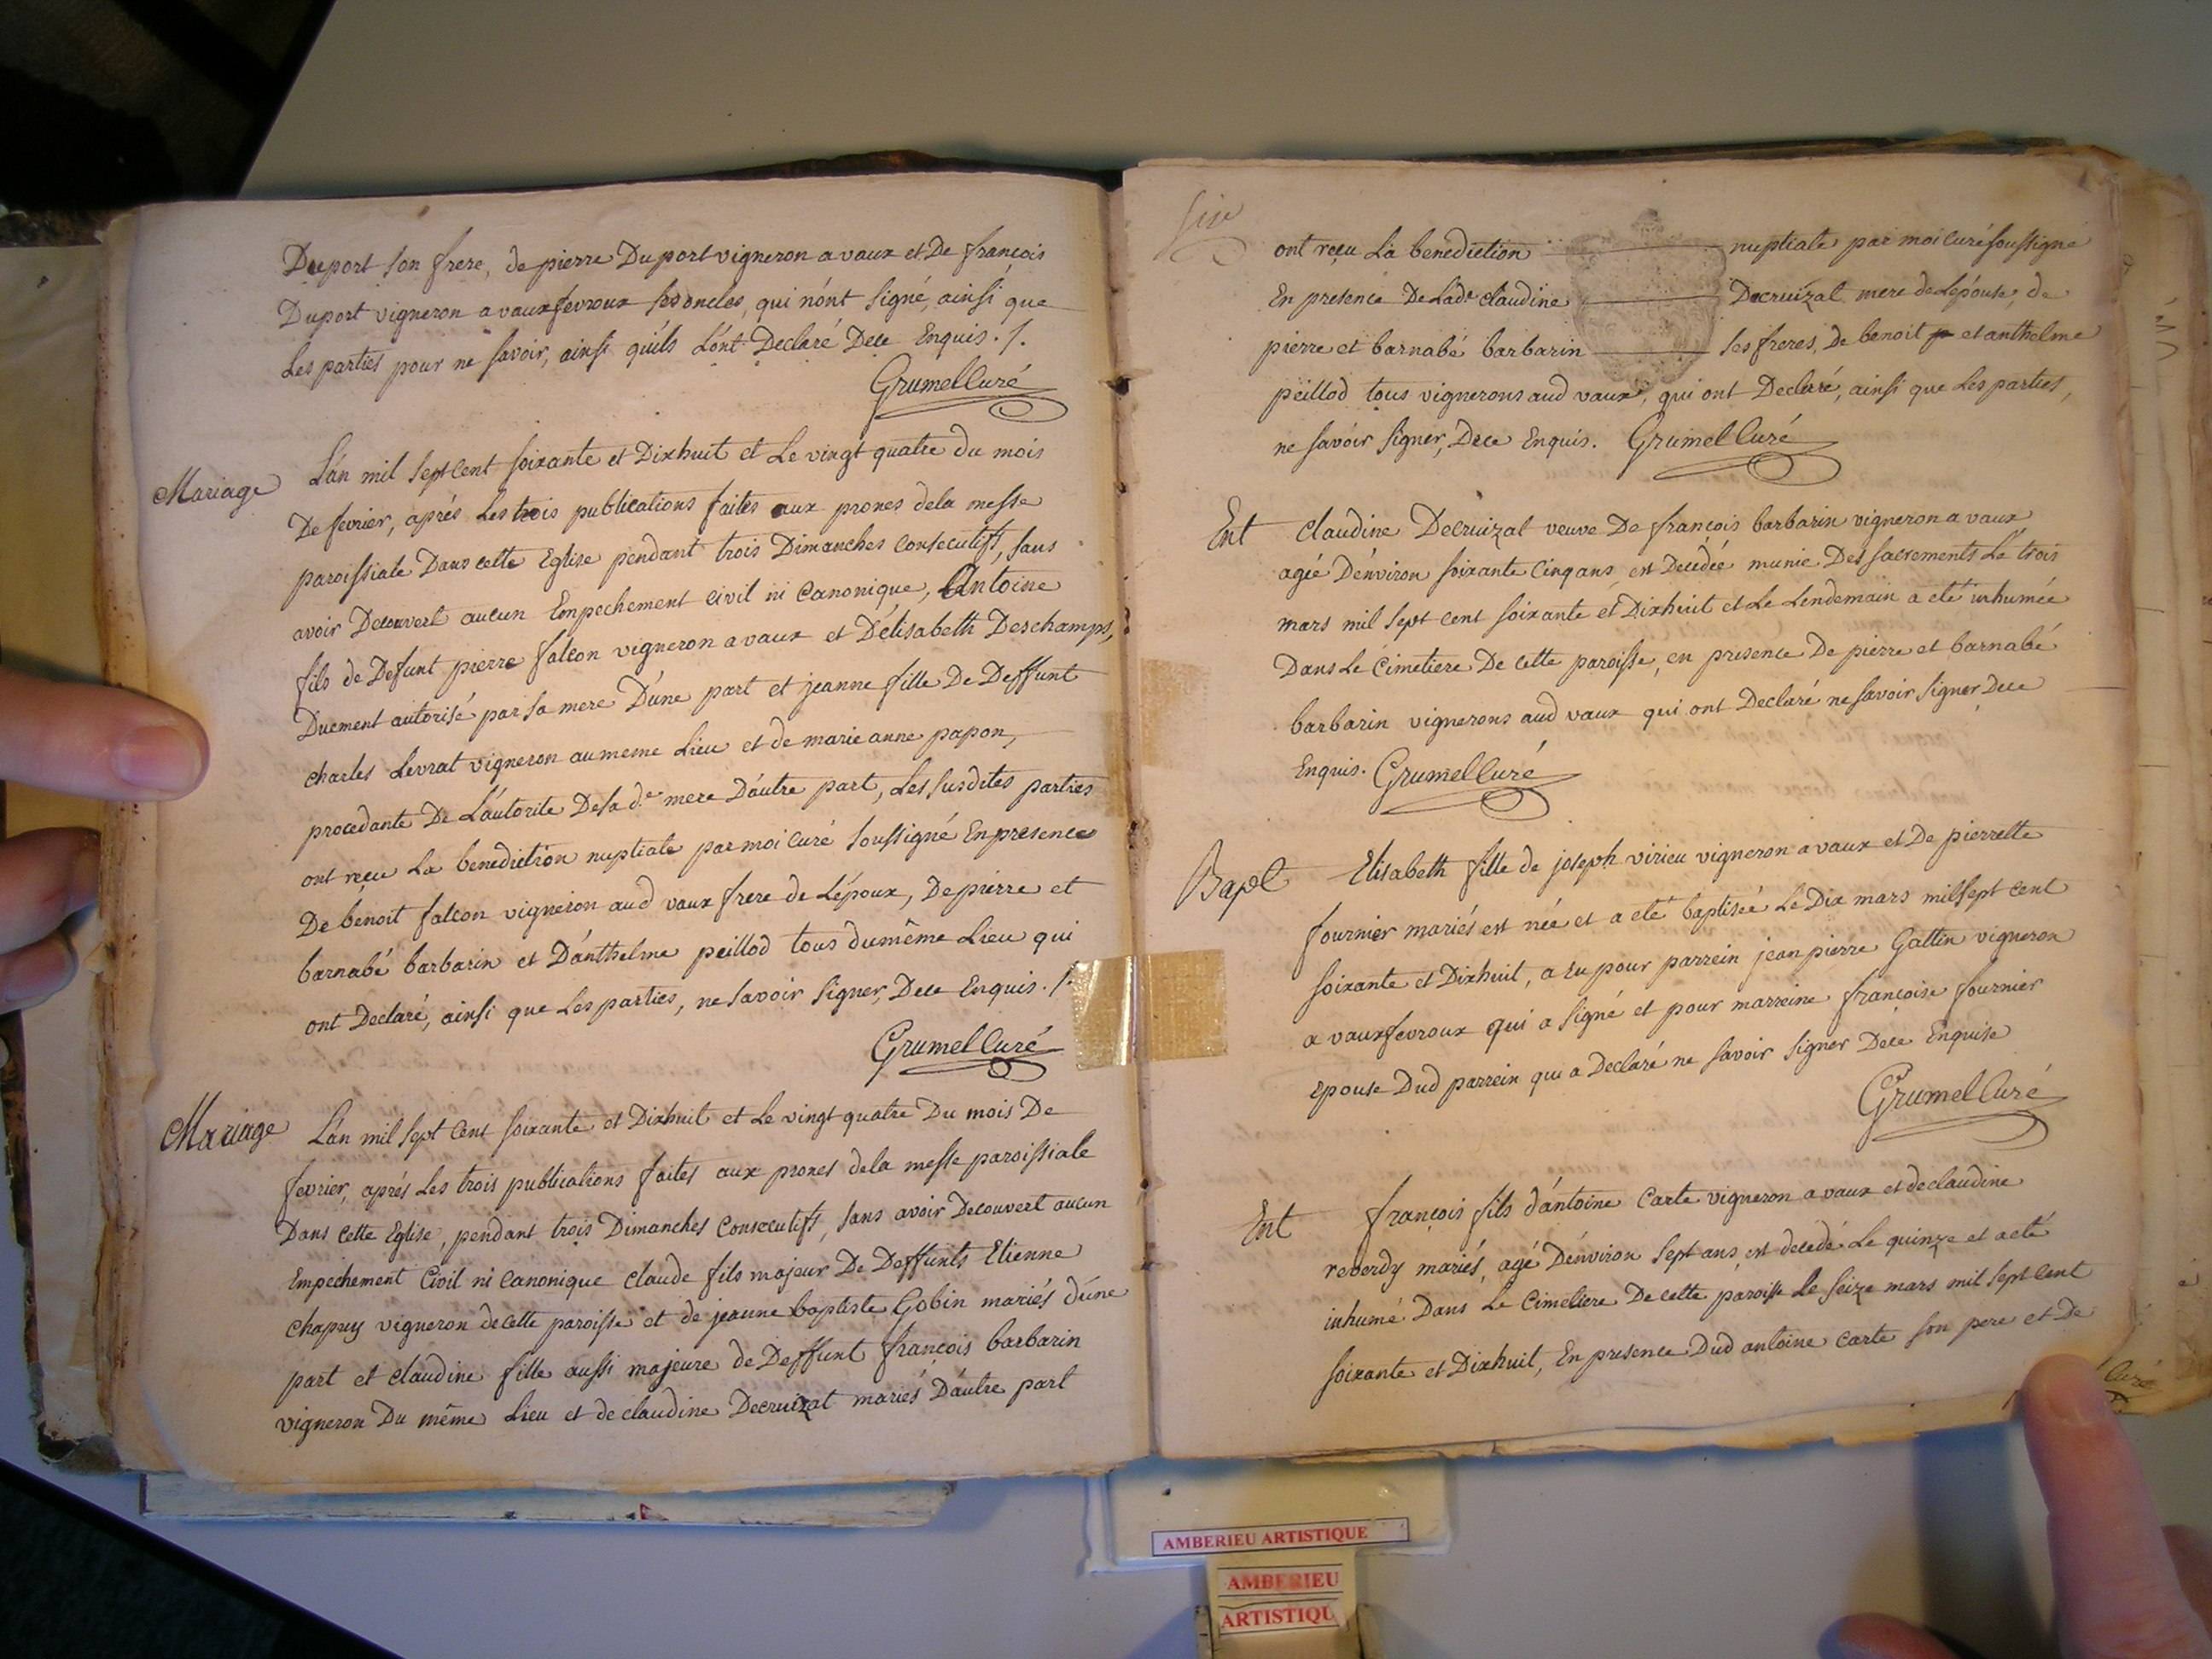 Duport son frere, de pierre Duport vigneron a vaux et De françois
Duport vigneron a vauxfevroux ses oncles, qui n'ont signé, ainsi que
Les parties pour ne savoir, ainsi qu'ils L'ont Declaré Dece Enquis ./.
Grumel Curé
Mariage
L'an mil sept cent soixante et Dixhuit et Le vingt quatre du mois
De fevrier, aprés Les trois publications faites aux prones dela messe
paroissiale Dans cette Eglise pendant trois Dimanches consecutifs, sans
avoir Decouvert aucun Empechement civil ni Canonique, Antoine
fils de Defunt pierre falcon vigneron a vaux et D'élisabeth Deschamps,
Duement autorisé par sa mere D'une part et jeanne fille De Deffunt
charles Levrat vigneron au meme Lieu et de marie anne papon,
procedante De L'autorite Desa de mere D'autre part, Les susdites parties
ont reçu La benediction nuptiale par moi curé soussigné En presence
De benoit falcon vigneron aud vaux frere de L'époux, De pierre et
barnabé barbarin et D'anthelme peillod tous du même Lieu qui
ont Declaré, ainsi que Les parties, ne savoir signer, Dece Enquis ./.
Grumel Curé
Mariage
L'an mil sept cent soixante et Dixhuit et Le vingt quatre Du mois De
fevrier, aprés Les trois publications faites aux prones dela messe paroissiale
Dans cette Eglise, pendant trois Dimanches consecutifs, sans avoir Decouvert aucun
Empechement Civil ni Canonique claude fils majeur De Deffunts Etienne
chapuy vigneron de cette paroisse et de jeanne baptiste Gobin mariés d'une
part et claudine fille aussi majeure de Deffunt françois barbarin
vigneron Du même Lieu et de claudine Decruizat mariés D'autre part
six
ont reçu La benediction nuptiale par moi curé soussigné
En presence De Lade claudine Decruizat mere de L'épouse, de
pierre et barnabé barbarin ses freres, De benoit et anthelme
peillod tous vignerons aud vaux, qui ont Declaré, ainsi que Les parties,
ne savoir signer, Dece Enquis. Grumel Curé
Ent
Claudine Decruizat veuve De françois barbarin vigneron a vaux
agée D'environ soixante Cinq ans est Decedée munie Des sacrements Le trois
mars mil sept cent soixante et Dixhuit et Le Lendemain a eté inhumée
Dans Le Cimetiere De cette paroisse, en presence De pierre et barnabé
barbarin vignerons aud vaux qui ont Declaré ne savoir signer Dece
Enquis. Grumel Curé
Bapt
Elisabeth fille de joseph virieu vigneron a vaux et De pierrette
fournier mariés est née et a eté baptisée Le Dix mars mil sept cent
soixante et Dixhuit, a Eu pour parrein jean pierre Gallin vigneron
a vauxfevroux qui a signé et pour marreine françoise fournier
epouse Dud parrein qui a Declaré ne savoir signer Dece Enquise
Grumel Curé
Ent
françois fils d'antoine Carte vigneron a vaux et de claudine
reverdy mariés, agé D'environ sept ans, est decedé Le quinze et a eté
inhumé Dans Le Cimetiere De cette paroisse Le seize mars mil sept cent
soixante et Dixhuit, En presence Dud antoine carte son pere et De
curé
AMBERIEU ARTISTIQUE
AMBERIEU
ARTISTIQU